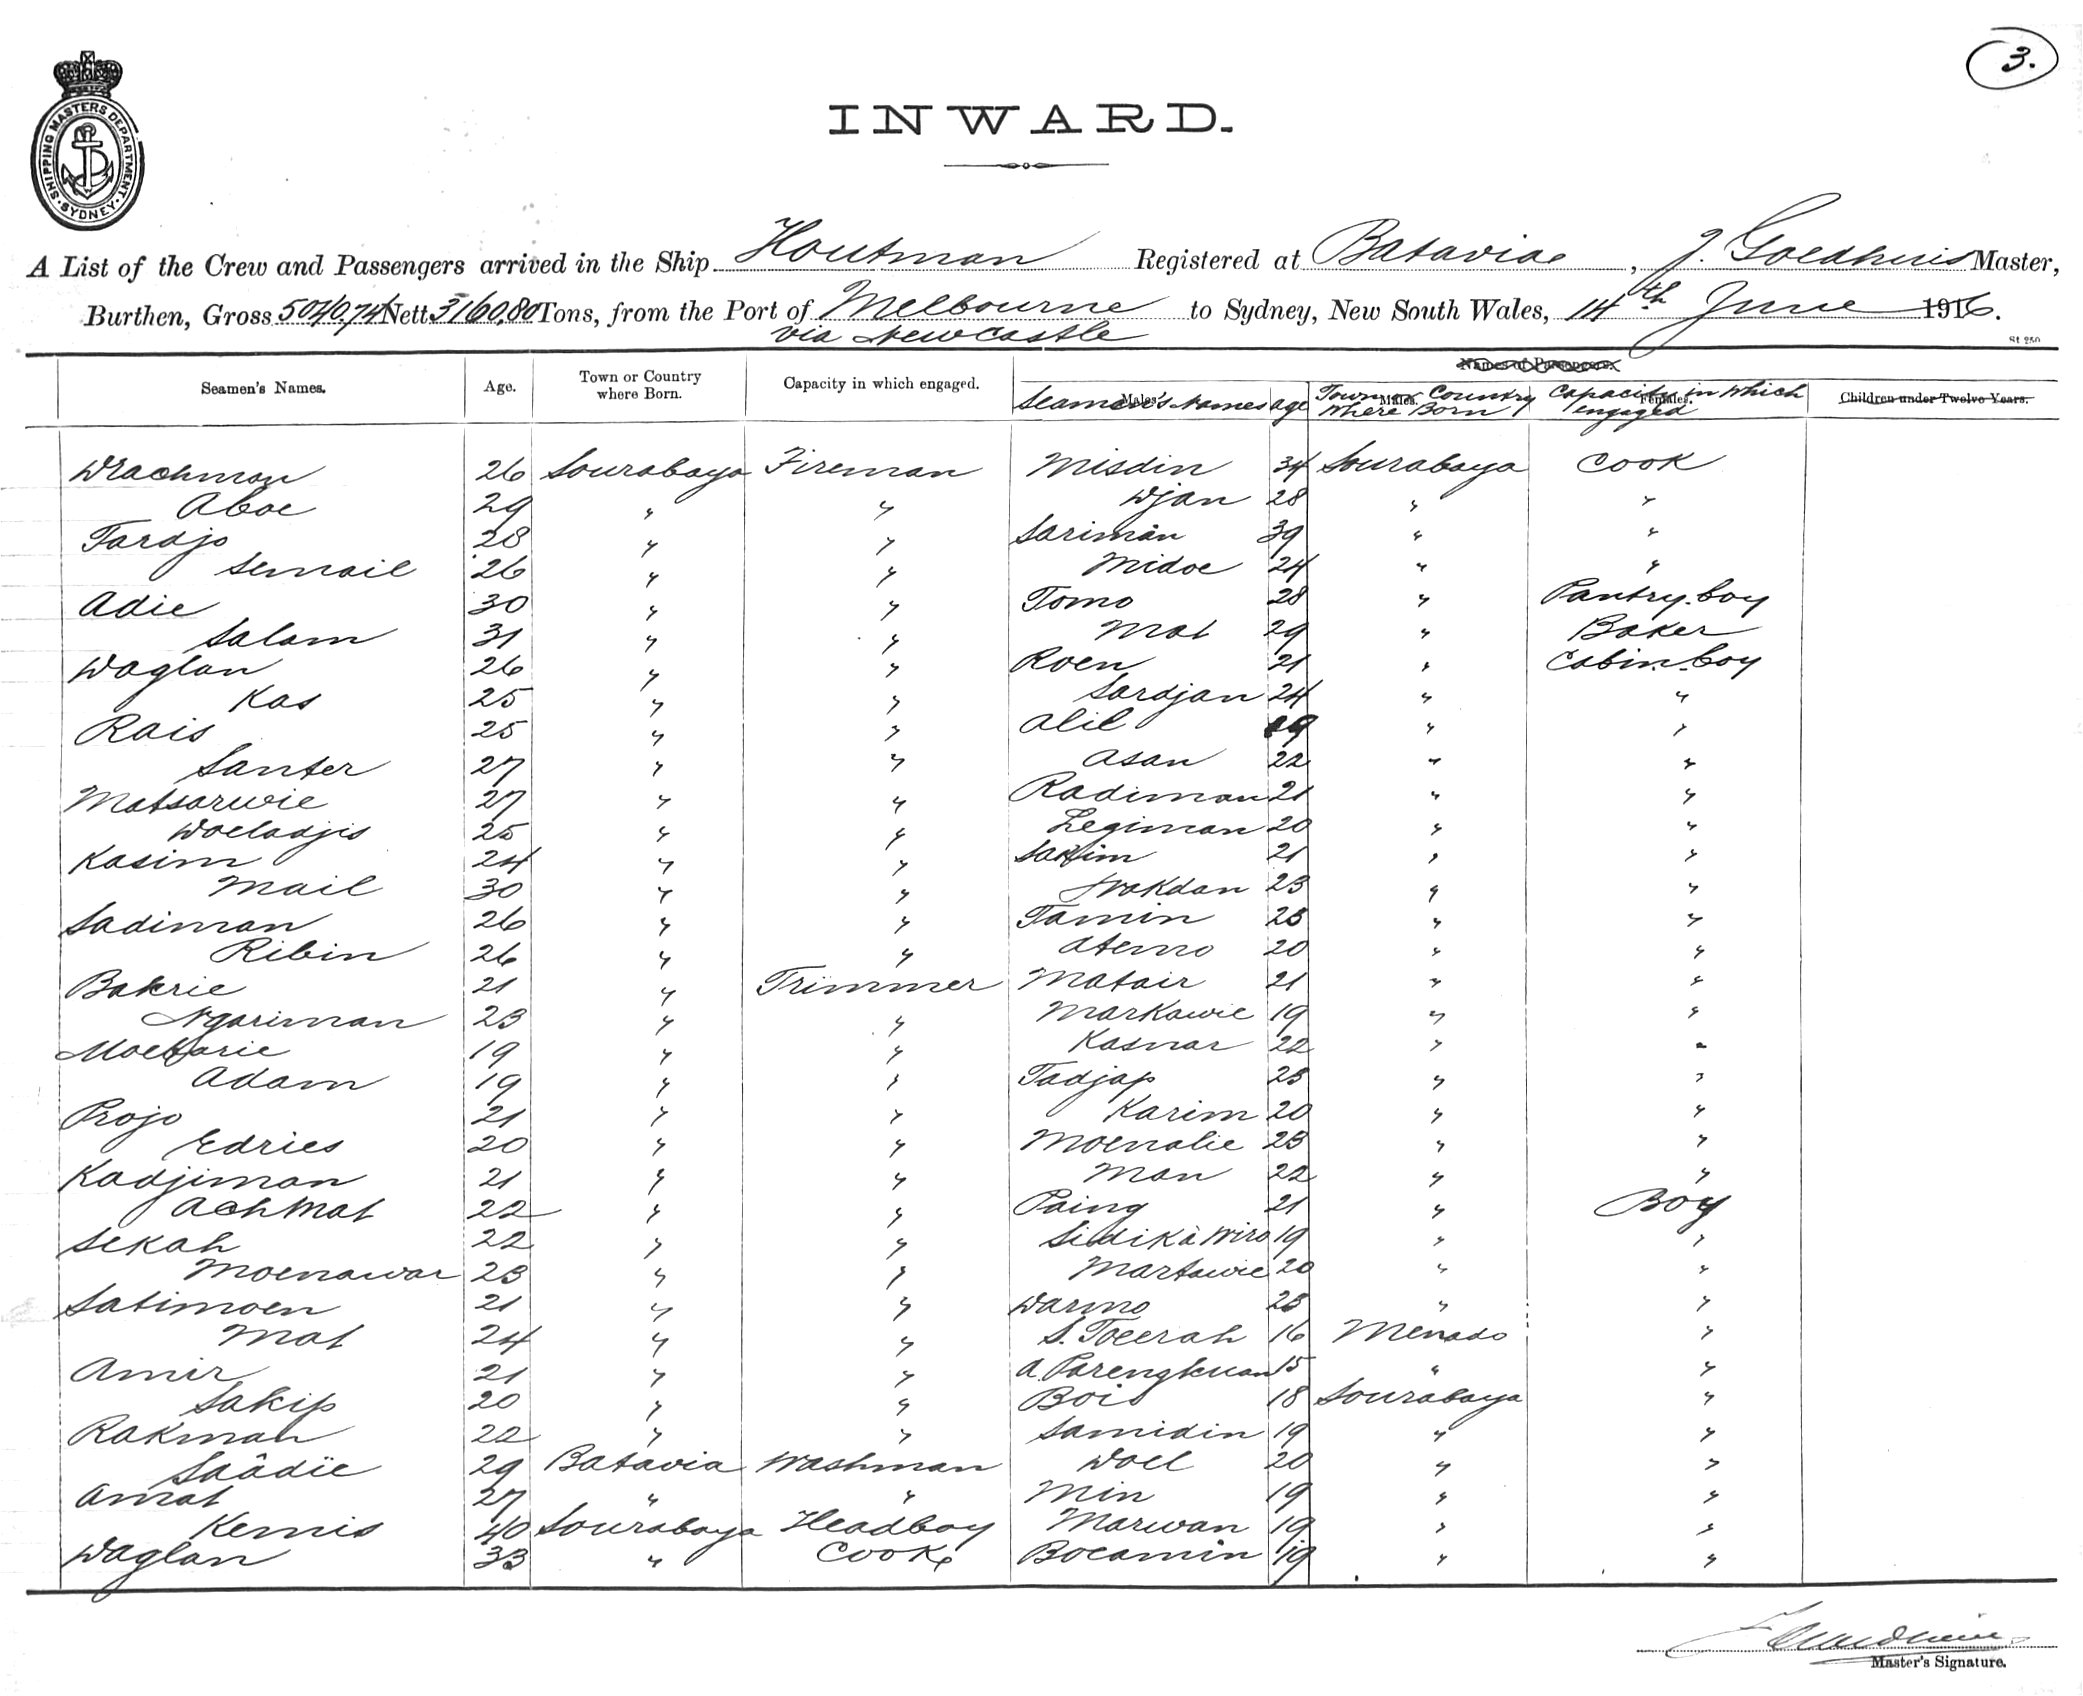 3.
SHIPPING MASTERS DEPARTMENT. SYDNEY.
INWARD.
A List of the Crew and Passengers arrived in the Ship Houtman Registered at Batavia, J. Goedhuis Master,
Burthen, Gross 5040,74 Nett 3160,80 Tons, from the Port of Melbourne to Sydney, New South Wales, 14th June 1916.
via Newcastle
St 250
Names of Passengers.
Seamen's Names. Age. Town or Country where Born. Capacity in which engaged. Males. Males. Females. Children under Twelve Years.
Seamen's Names age Town or Country where Born Capacity in which engaged
Wrachman 26 Sourabaya Fireman Misdin 34 Sourabaya Cook
Aboe 29 " " Wjan 28 " "
Tardjo 28 " " Sariman 39 " "
Semail 26 " " Midoe 24 " "
Adie 30 " " Tomo 28 " Pantry-boy
Salam 31 " " Mat 29 " Baker
Waglan 26 " " Roen 21 " Cabin-boy
Kas 25 " " Sardjan 24 " "
Rais 25 " " Alil 19 " "
Santer 27 " " Asan 22 " "
Matsarwie 27 " " Radiman 21 " "
Woeladjis 25 " " Legiman 20 " "
Kasim 24 " " Sakim 21 " "
Mail 30 " " Wakdan 23 " "
Sadiman 26 " " Tamin 23 " "
Ribin 26 " " Atemo 20 " "
Bakrie 21 " Trimmer Matair 21 " "
Ngariman 23 " " Markawie 19 " "
Moekarie 19 " " Kasnar 22 " "
Adam 19 " " Tadjap 23 " "
Projo 21 " " Karim 20 " "
Edries 20 " " Moenalie 23 " "
Kadjiman 21 " " Man 22 " "
Achmat 22 " " Paing 21 " Boy
Sekah 22 " " Sidikà Wiro 19 " "
Moenawar 23 " " Martawie 20 " "
Satimoen 21 " " Warmo 23 " "
Mat 24 " " S. Toeerah 16 Menado "
Amir 21 " " A. Parengkuan 15 " "
Sakip 20 " " Bois 18 Sourabaya "
Rakman 22 " " Samidin 19 " "
Saâdïe 29 Batavia Washman Woel 20 " "
Amat 27 " " Min 19 " "
Kemis 40 Sourabaya Headboy Marwan 19 " "
Waglan 33 " Cook Boeamin 19 " "
Master's Signature.